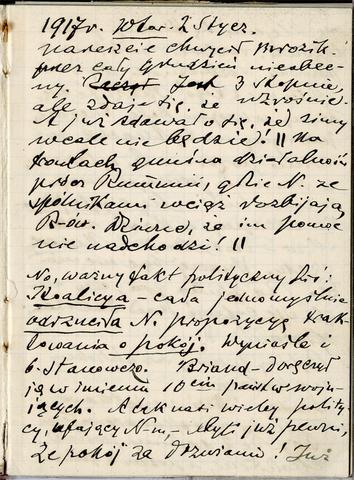 1917 r. Wtor. 2 Stycz.
nareszcie chwycił mrozik.
przez cały grudzień nieobec-
ny. Jest 3 stopnie,
ale zdaje się, że wzrośnie.
A już zdawało się, że zimy
wcale nie będzie! || Na
frontach gminna działalność
prócz Rumunii, gdzie N. ze
spólnikami wciąż rozbijają
R-ów. Dziwne, że im pomoc
nie nadchodzi! ||
No, ważny fakt polityczny dziś:
Koalicya - cała jednomyślnie
odrzuciła N. propozycyę trak-
towania o pokój. Wyniośle i
b. stanowczo. Briand - doręczył
ją w imieniu 10ciu państw woju-
jących. A tak nasi wielcy polity-
cy, ufający N-m, - byli już pewni,
że pokój za drzwiami! Już